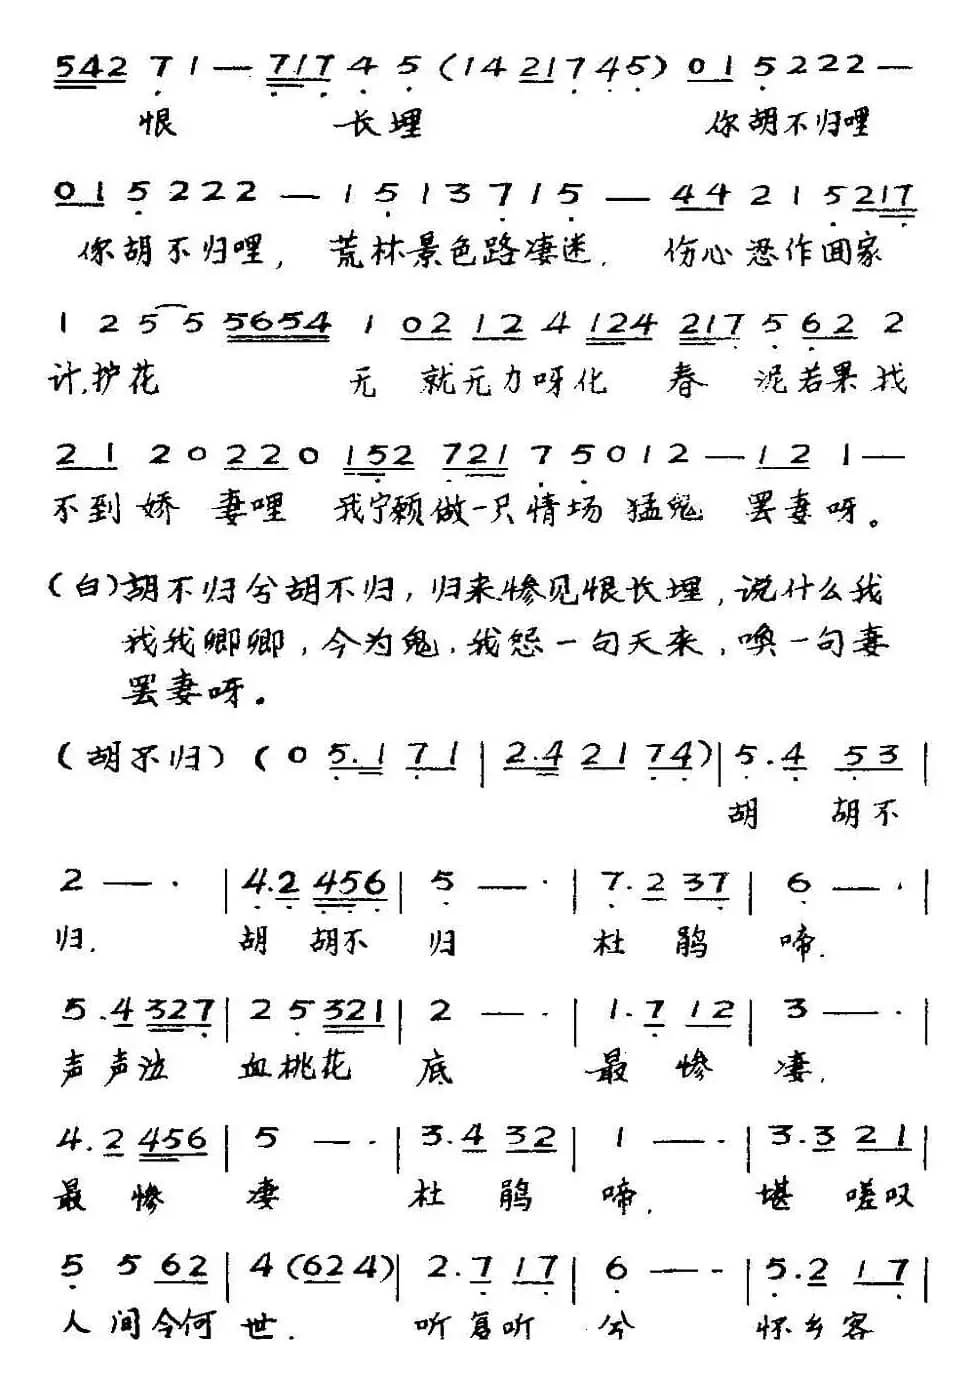 542 7 1 — 717 4 5 (14 21 7 4 5) 01 5 222 —
恨 长埋 你胡不归哩
01 5 222 — 1 5 1 3 7 1 5 — 44 2 1 5 217
你胡不归哩, 荒林景色路凄迷. 伤心恐作回家
1 2 5 5 5654 1 02 12 4 124 217 5 62 2
计,护花 无 就无力呀化 春 泥若果找
21 20 220 152 721 7 5 0 1 2 — 12 1 —
不到娇 妻哩 我宁愿做一只情场 猛鬼 罢妻呀。
(白)胡不归兮胡不归, 归来惨见恨长埋, 说什么我
我我卿卿, 今为鬼. 我怨一句天来, 唤一句妻
罢妻呀。
(胡不归) (0 5.1 71 | 2.4 21 74) | 5.4 53 |
胡 胡不
2 — · | 4.2 456 | 5 — · | 7.2 37 | 6 — · |
归. 胡 胡不 归 杜 鹃 啼.
5.4 327 | 2 5 321 | 2 — · | 1.7 12 | 3 — · |
声声泣 血桃花 底 最 惨 凄.
4.2 456 | 5 — · | 3.4 32 | 1 — · | 3.3 21 |
最 惨 凄 杜 鹃 啼. 堪 嗟叹
5 5 62 | 4 (624) | 2.7 17 | 6 — · | 5.2 17 |
人 间今何 世. 听复听 兮 怀乡客